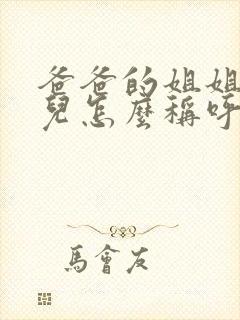 爸爸的姐姐
兒怎麼稱呼
馬會友